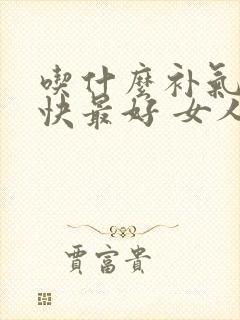 喫什麼补氣
快最好 女人
賈富貴